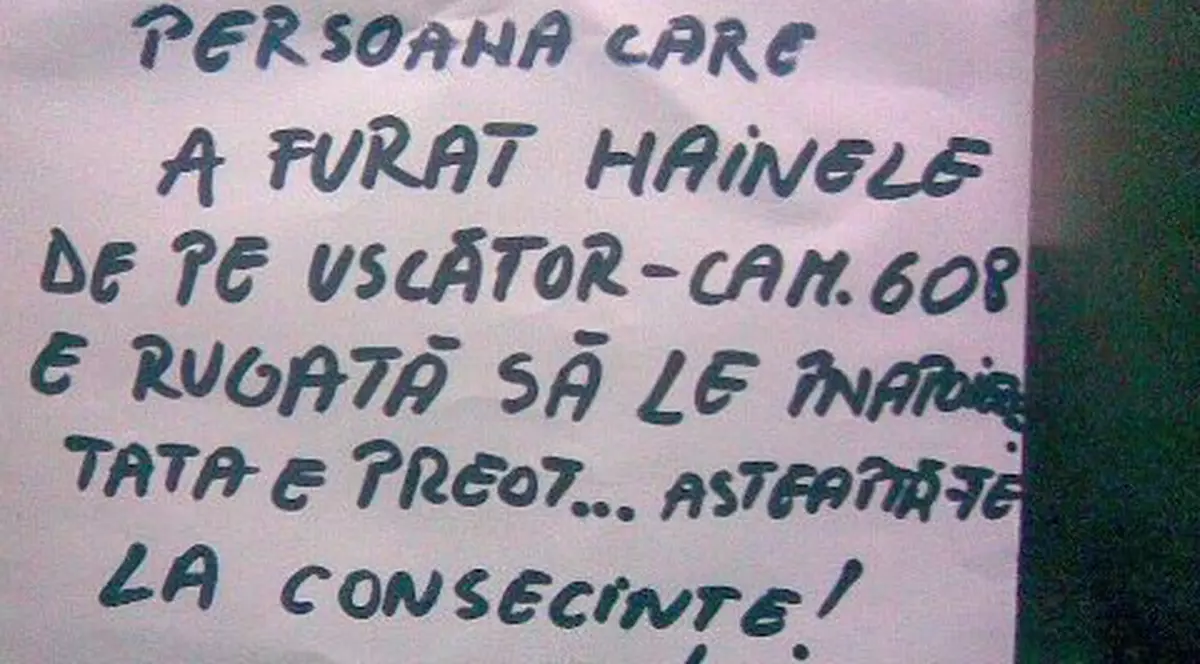 PERSOANA CARE
A FURAT HAINELE
DE PE USCĂTOR-CAM. 608
E RUGATĂ SĂ LE ÎNAPOIEZE
TATA E PREOT... ASTEAPTĂ-TE
LA CONSECINTE!